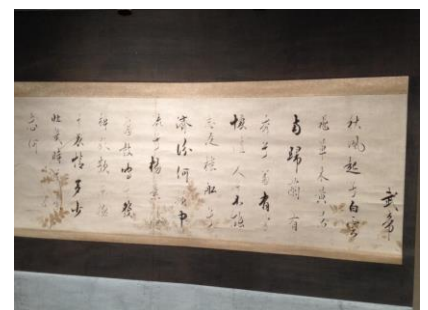 武帝
秋風起兮白雲
飛草木黄落
南歸蘭有
秀兮菊有芳
懷佳人兮不能
忘泛樓船兮
濟汾河中
流兮揚素波
簫鼓鳴兮發
棹歌歡樂極
兮哀情多少
壯幾時兮奈
老何